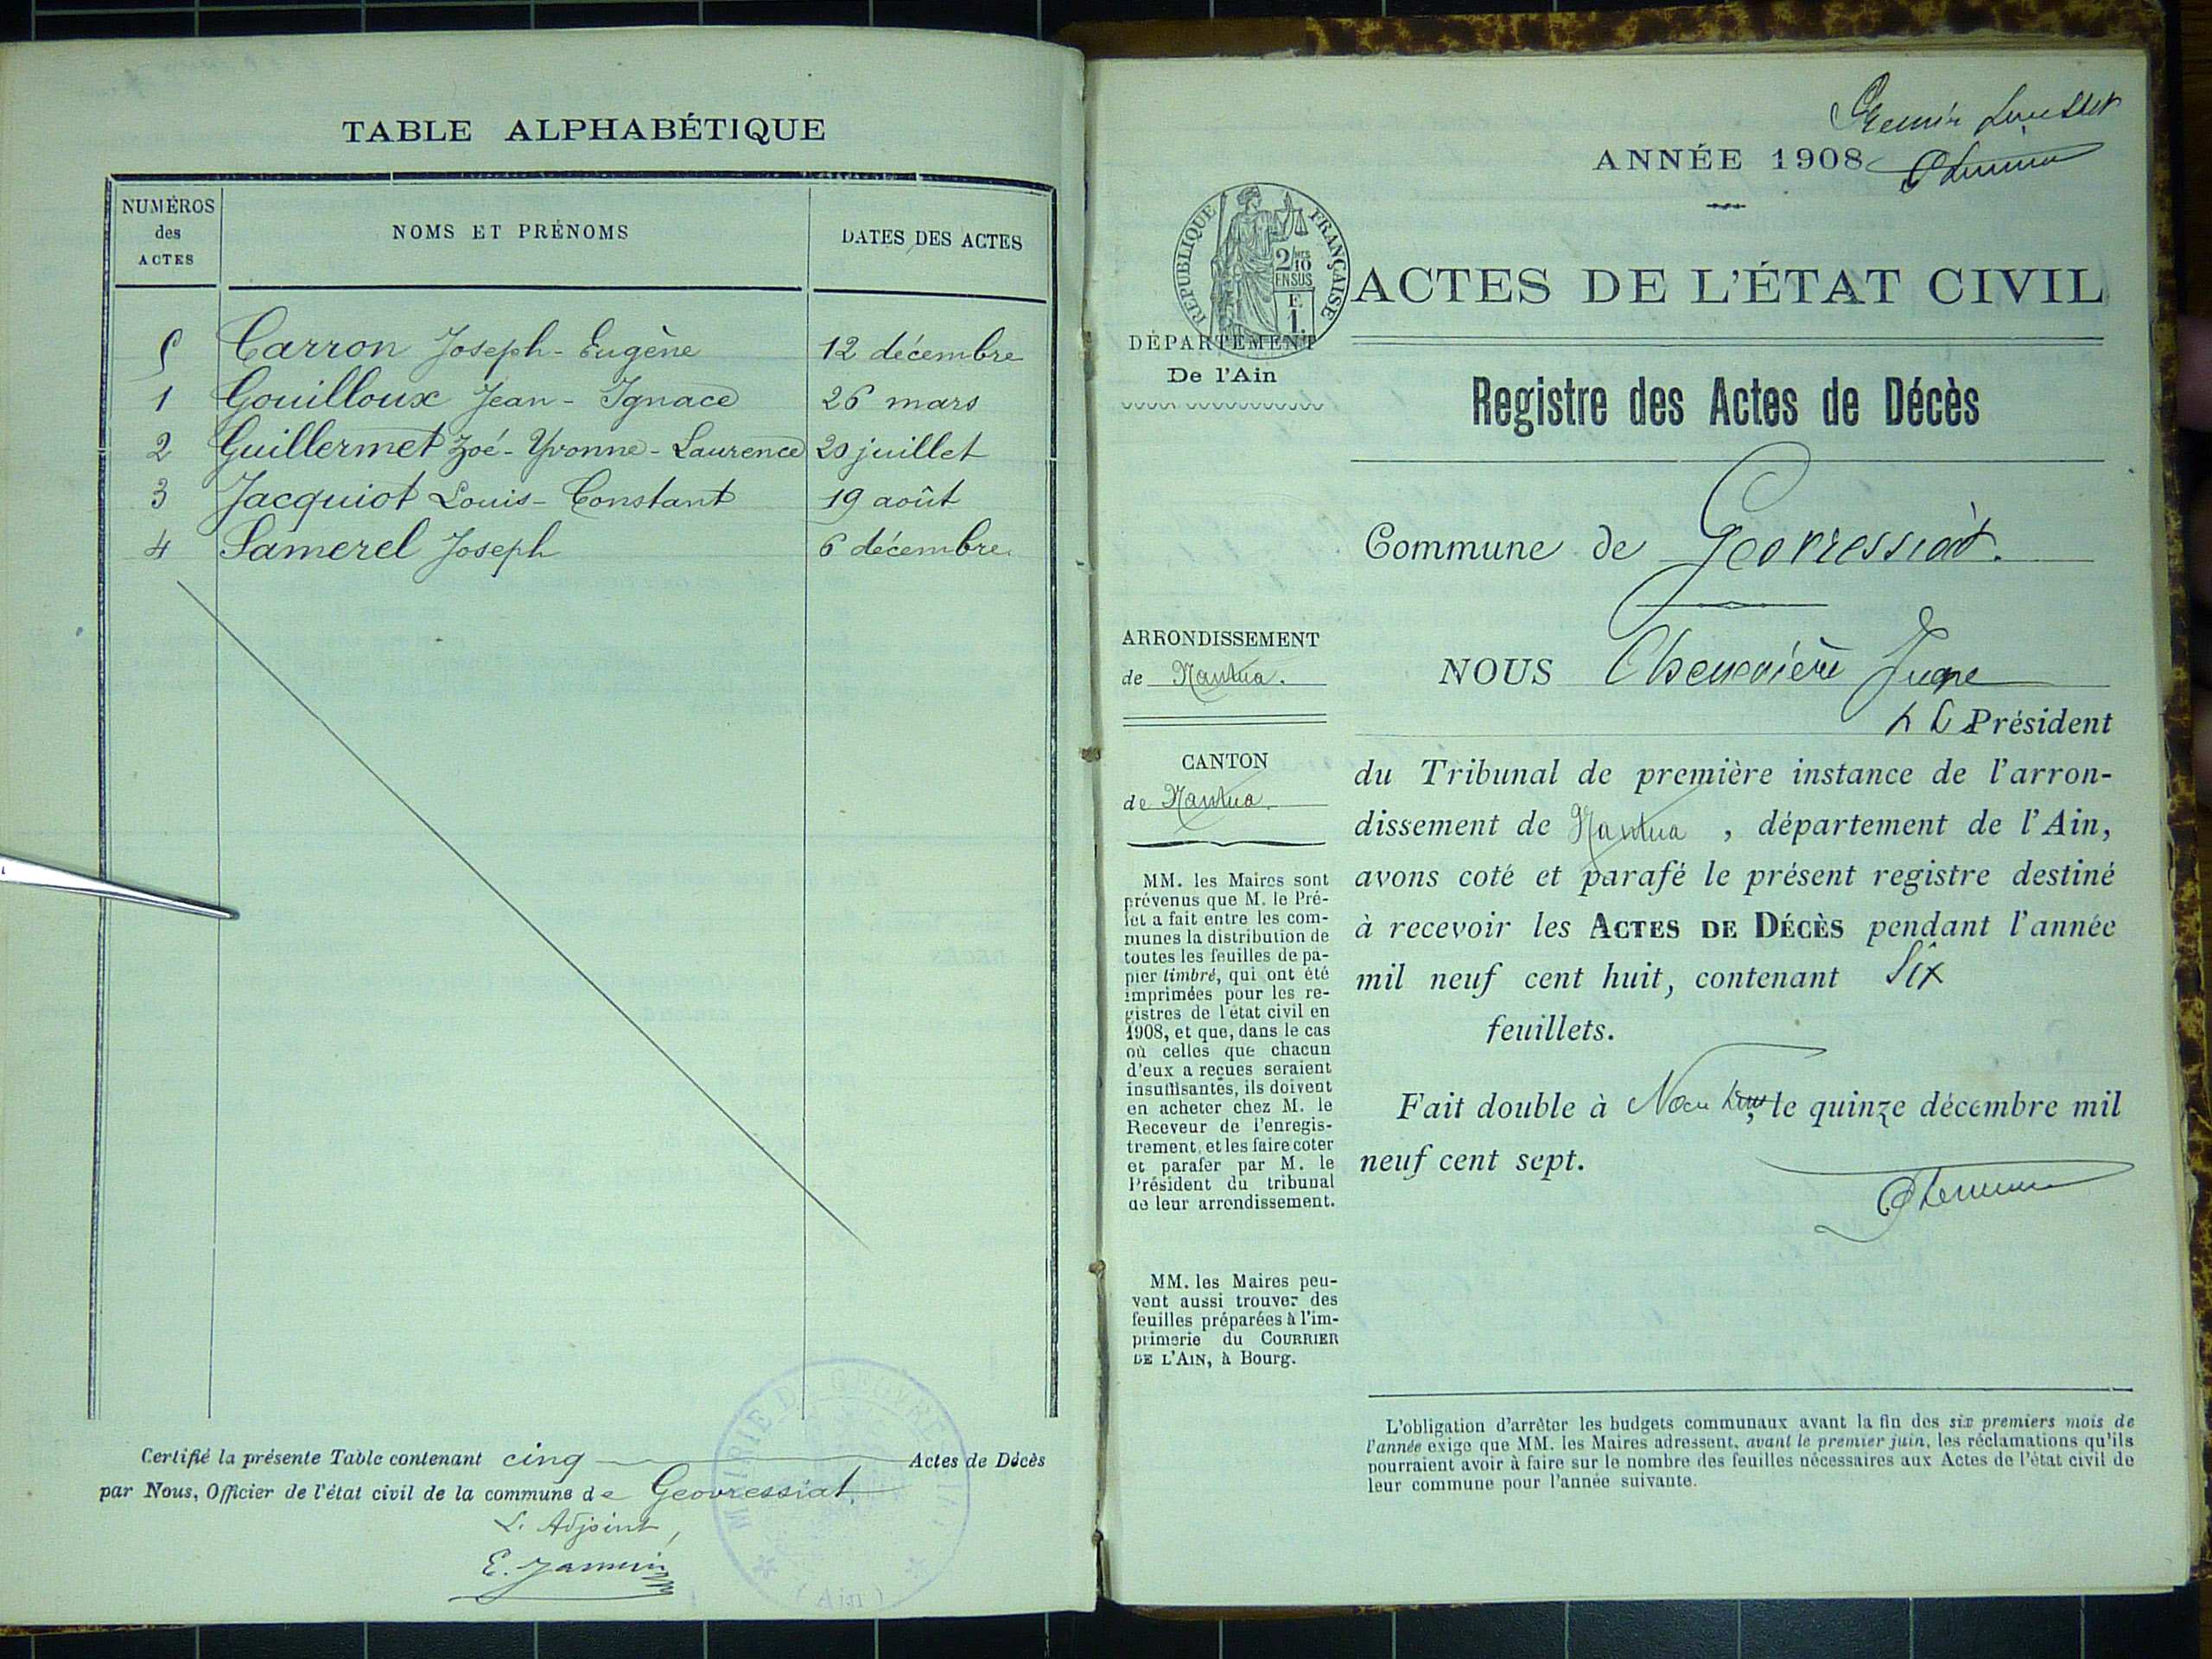 TABLE ALPHABÉTIQUE
NUMÉROS des ACTES NOMS ET PRÉNOMS DATES DES ACTES
5 Carron Joseph-Eugène 12 décembre
1 Gouilloux Jean-Ignace 26 mars
2 Guillermet Zoé-Yvonne-Laurence 20 juillet
3 Jacquiot Louis-Constant 19 août
4 Samerel Joseph 6 décembre
Certifié la présente Table contenant cinq Actes de Décès
par Nous, Officier de l'état civil de la commune de Geovressiat.
L. Adjoint,
E. Jannin
MAIRIE DE GEOVRESSIAT
(Ain)
Premier
ANNÉE 1908
RÉPUBLIQUE FRANÇAISE
2/10 EN SUS
1
ACTES DE L'ÉTAT CIVIL
DÉPARTEMENT
De l'Ain
Registre des Actes de Décès
Commune de Geovressiat.
ARRONDISSEMENT
de Nantua.
CANTON
de Nantua.
MM. les Maires sont
prévenus que M. le Pré-
fet a fait entre les com-
munes la distribution de
toutes les feuilles de pa-
pier timbré, qui ont été
imprimées pour les re-
gistres de l'état civil en
1908, et que, dans le cas
où celles que chacun
d'eux a reçues seraient
insuffisantes, ils doivent
en acheter chez M. le
Receveur de l'enregis-
trement, et les faire coter
et parafer par M. le
Président du tribunal
de leur arrondissement.
MM. les Maires peu-
vent aussi trouver des
feuilles préparées à l'im-
primerie du COURRIER
DE L'AIN, à Bourg.
NOUS Chenevière Juge
Président
du Tribunal de première instance de l'arron-
dissement de Nantua, département de l'Ain,
avons coté et parafé le présent registre destiné
à recevoir les ACTES DE DÉCÈS pendant l'année
mil neuf cent huit, contenant Six
feuillets.
Fait double à Nantua, le quinze décembre mil
neuf cent sept.
L'obligation d'arrêter les budgets communaux avant la fin des six premiers mois de
l'année exige que MM. les Maires adressent, avant le premier juin, les réclamations qu'ils
pourraient avoir à faire sur le nombre des feuilles nécessaires aux Actes de l'état civil de
leur commune pour l'année suivante.